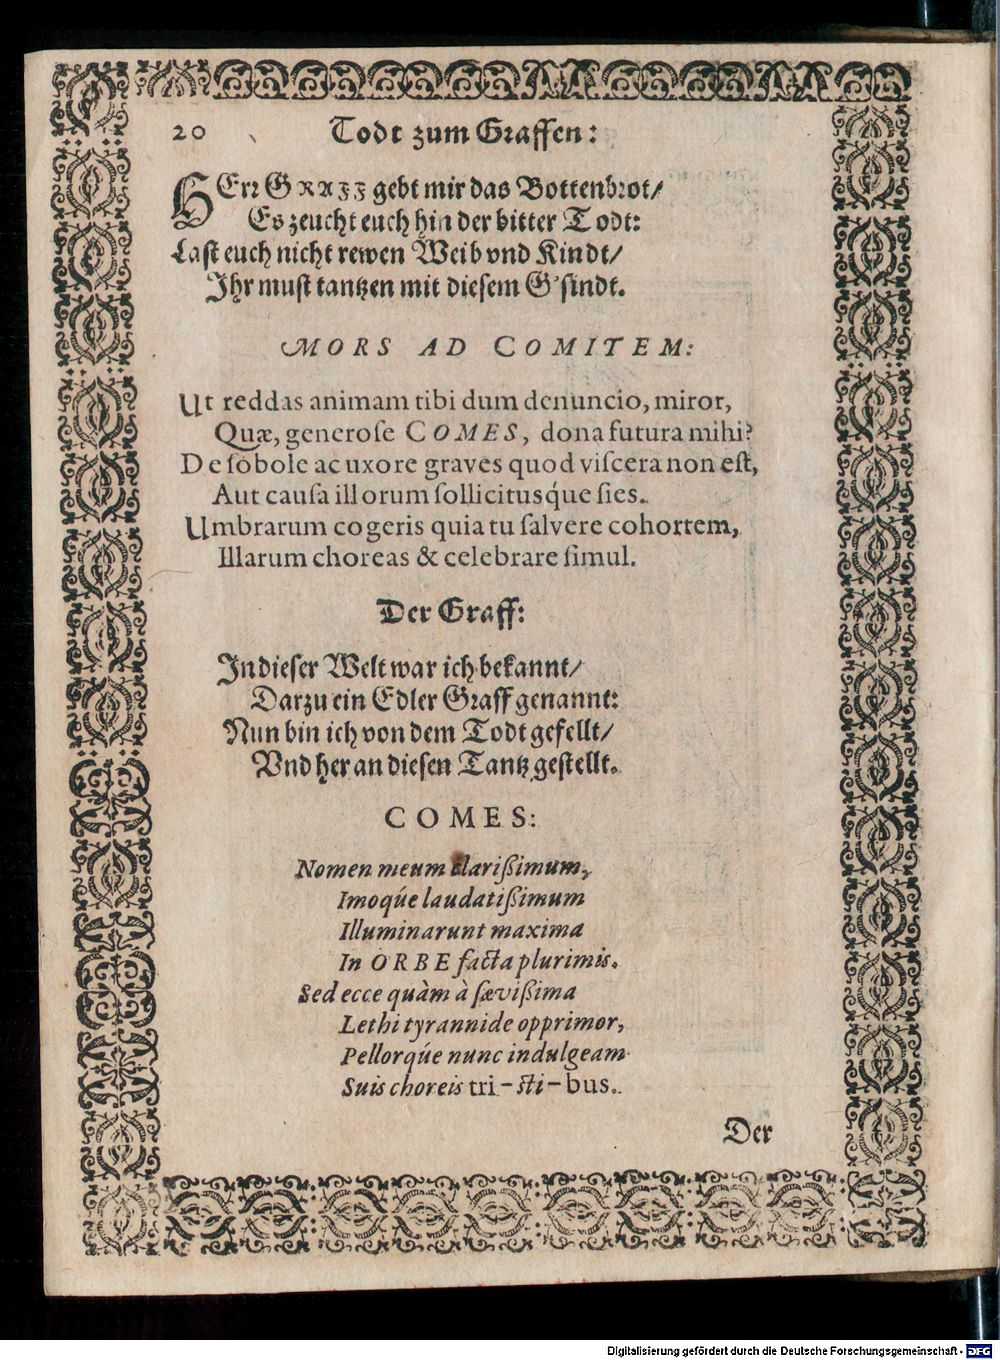 20 Todt zum Graffen:
HErr GRAFF gebt mir das Bottenbrot/
Es zeucht euch hin der bitter Todt:
Last euch nicht rewen Weib vnd Kindt/
Ihr must tantzen mit diesem G'sindt.
MORS AD COMITEM:
Ut reddas animam tibi dum denuncio, miror,
Quæ, generoſe COMES, dona futura mihi?
De ſobole ac uxore graves quod viſcera non eſt,
Aut cauſa illorum ſollicitusq́ue ſies.
Umbrarum cogeris quia tu ſalvere cohortem,
Illarum choreas & celebrare ſimul.
Der Graff:
In dieser Welt war ich bekannt/
Darzu ein Edler Graff genannt:
Nun bin ich von dem Todt gefellt/
Vnd her an diesen Tantz gestellt.
COMES:
Nomen meum clarißimum,
Imoq́ue laudatißimum
Illuminarunt maxima
In ORBE facta plurimis.
Sed ecce quàm à ſævißima
Lethi tyrannide opprimor,
Pellorq́ue nunc indulgeam
Suis choreis tri-ſti-bus.
Der
Digitalisierung gefördert durch die Deutsche Forschungsgemeinschaft - DFG